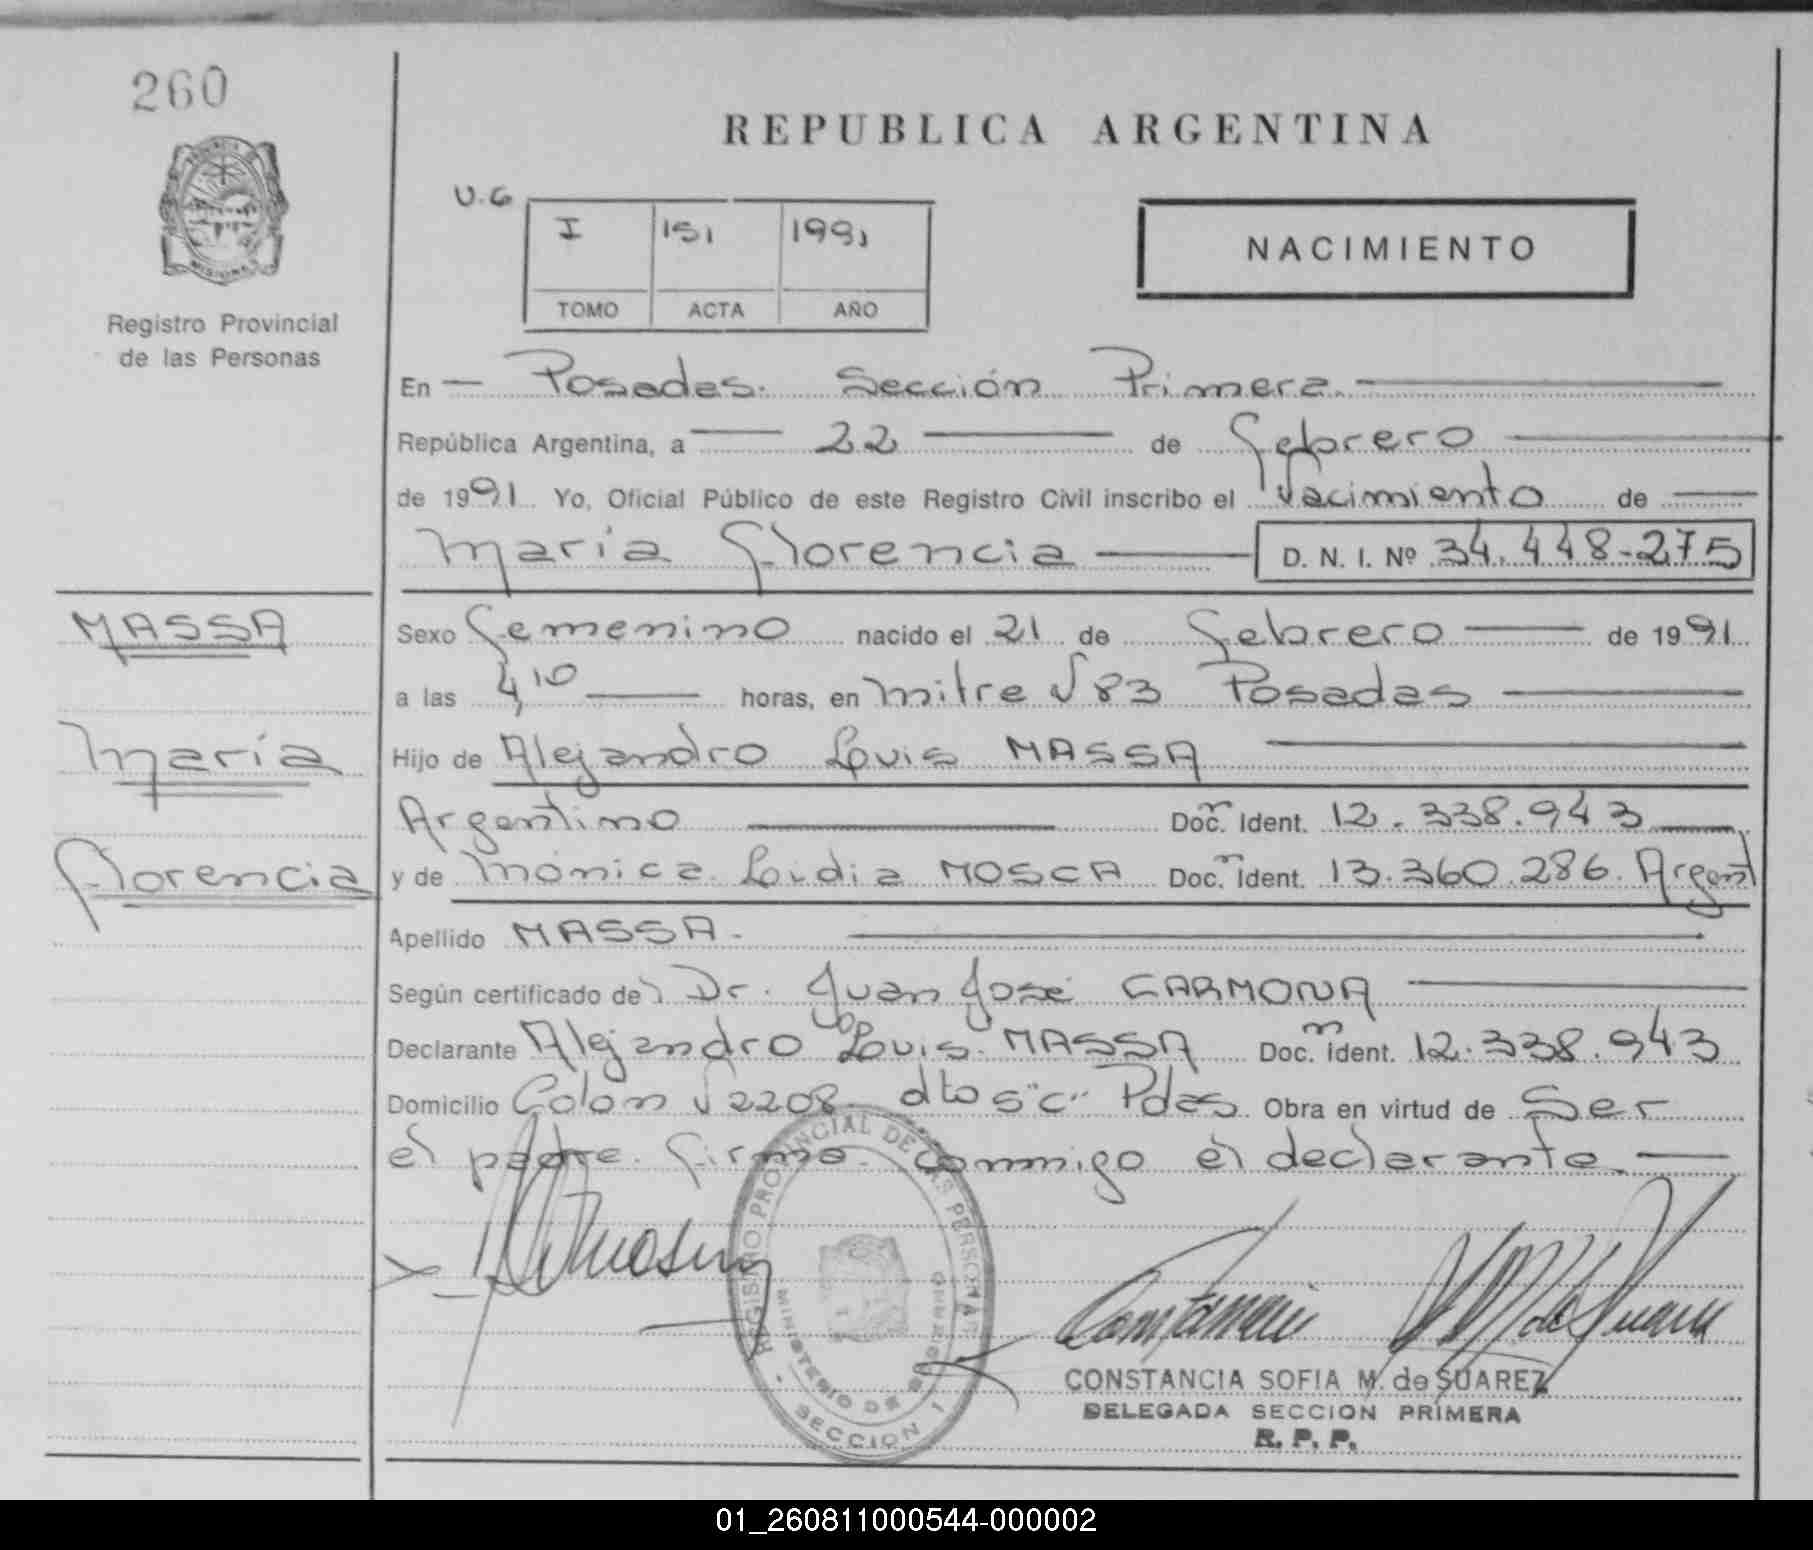 260
REPUBLICA ARGENTINA
U.G
I 151 1991
TOMO ACTA AÑO
NACIMIENTO
MISIONES
Registro Provincial
de las Personas
En — Posadas. Sección Primera. —
República Argentina, a — 22 — de Febrero —
de 1991. Yo, Oficial Público de este Registro Civil inscribo el Nacimiento de —
María Florencia — D. N. I. Nº 34.448-275
MASSA
Sexo Femenino nacido el 21 de Febrero — de 1991
a las 4,10 — horas, en Mitre √ 83 Posadas —
María
Hijo de Alejandro Luis MASSA —
Argentino — Doc. Ident. 12.338.943 —
Florencia
y de Mónica Lidia MOSCA Doc. Ident. 13.360.286. Argent
Apellido MASSA. —
Según certificado del Dr. Juan José CARMONA —
Declarante Alejandro Luis MASSA Doc. Ident. 12.338.943
Domicilio Colon √ 2208 dto s"c" Pdas. Obra en virtud de Ser
el padre. Firma conmigo el declarante. —
REGISTRO PROVINCIAL DE LAS PERSONAS
MINISTERIO DE GOBIERNO
SECCION 1
CONSTANCIA SOFIA M. de SUAREZ
DELEGADA SECCION PRIMERA
R. P. P.
01_260811000544-000002